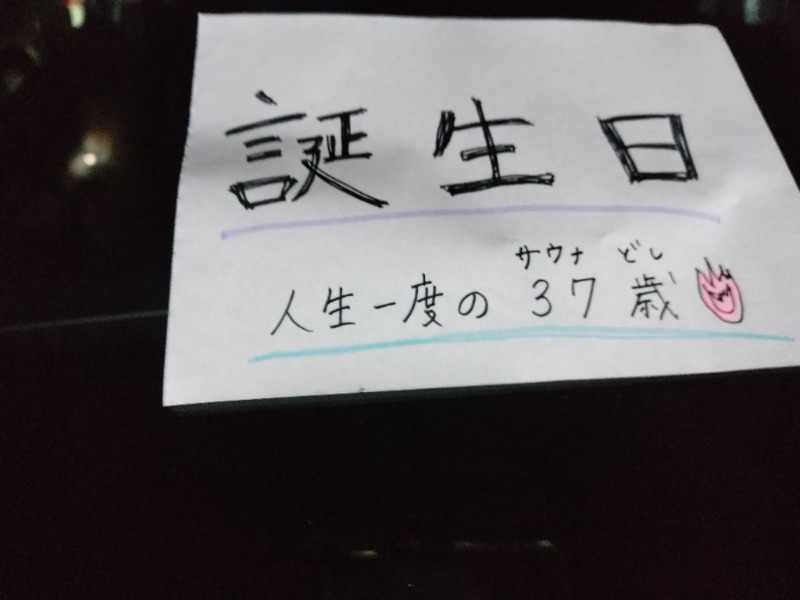 誕生日
サウナ どし
人生一度の 37 歳